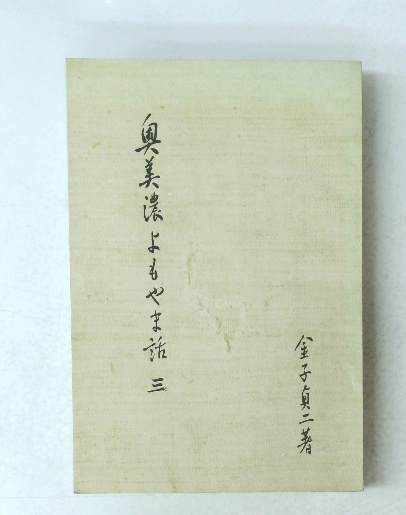 奥美濃よもやま話 三
金子貞二著